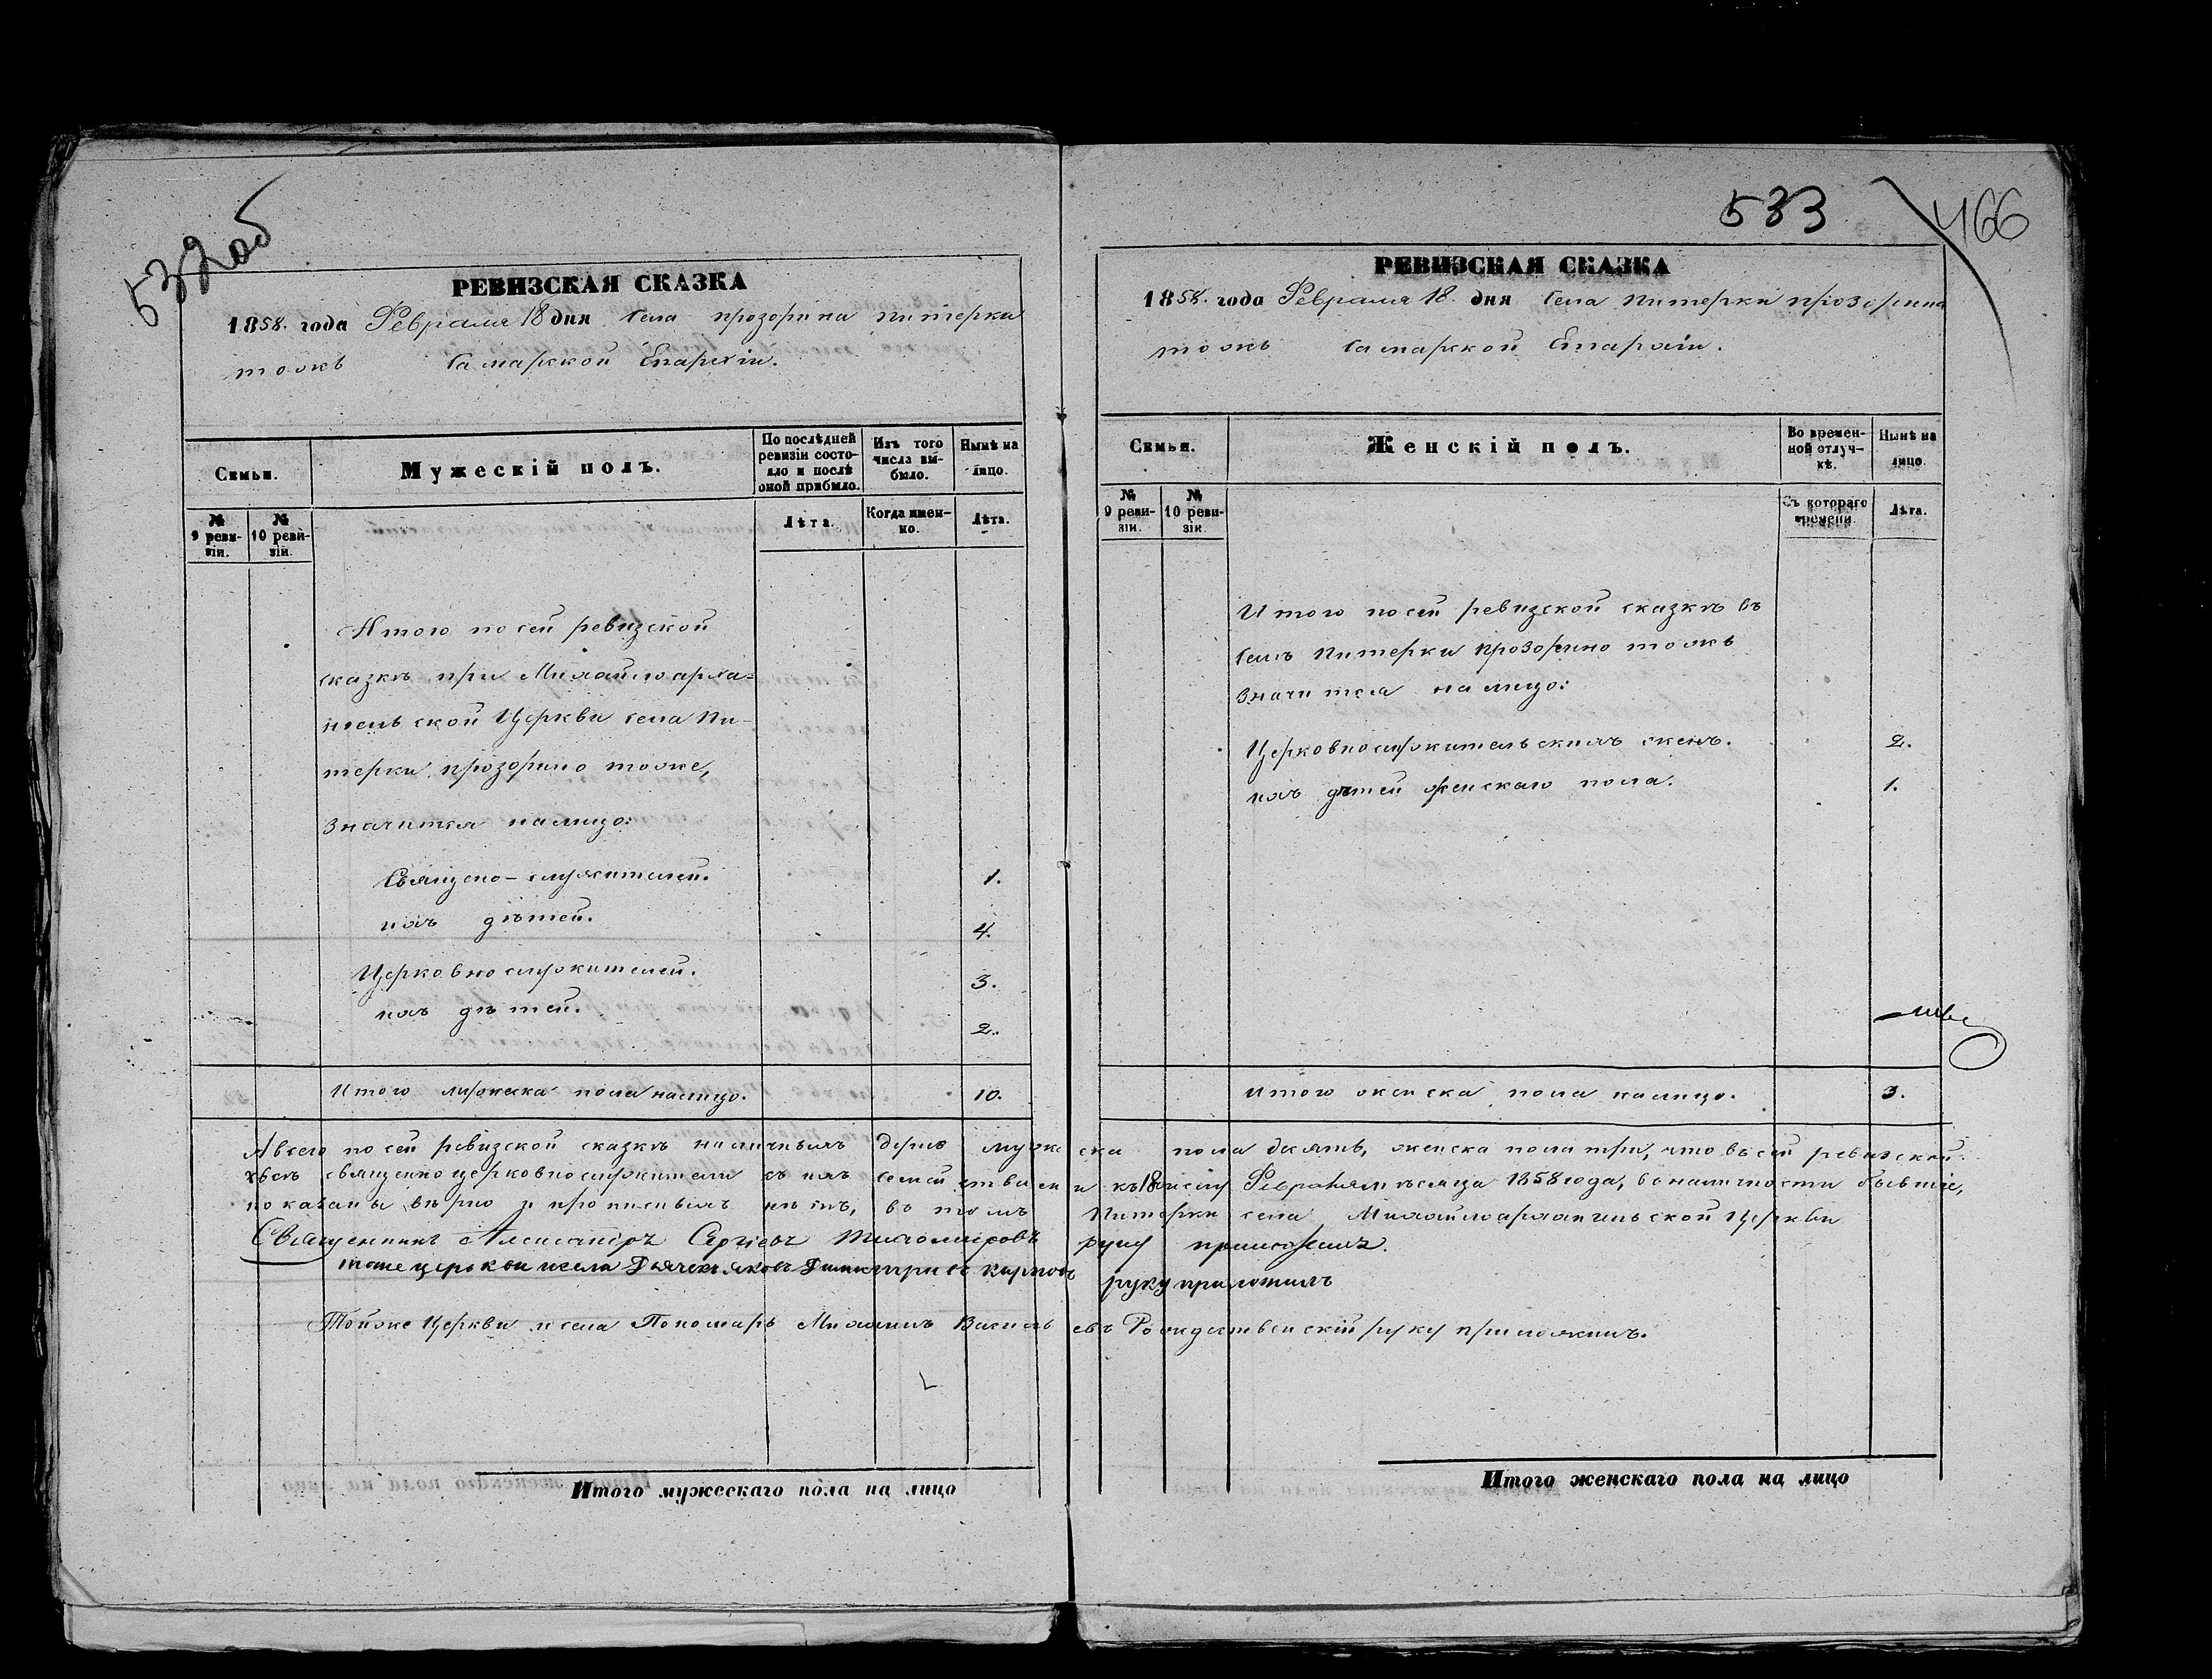 532об
РЕВИЗСКАЯ СКАЗКА
1858. года Февраля 18 дня Села прозорина питерка
тожъ Самарской Епархіи.
Семьи.
Мужескій полъ.
По послѣдней ревизіи состояло и послѣ оной прибыло.
Изъ того числа выбыло.
Нынѣ на лицо.
№ 9 ревизіи.
№ 10 ревизіи.
Лѣта.
Когда именно.
Лѣта.
Итого по сей ревизской
сказкѣ при Михайлоарха=
нгельской Церкви села Пи-
терки, прозорино тоже,
значится налицо:
Священо-служителей. 1.
ихъ дѣтей. 4.
Церковнослужителей. 3.
ихъ дѣтей. 2.
Итого мужеска пола налицо. 10.
Итого мужескаго пола на лицо
533
466
РЕВИЗСКАЯ СКАЗКА
1858. года Февраля 18. дня Села Питерки прозорина
тожъ Самарской Епархіи.
Семьи.
Женскій полъ.
Во временной отлучкѣ.
Нынѣ на лицо.
№ 9 ревизіи.
№ 10 ревизіи.
Съ котораго времени.
Лѣта.
Итого по сей ревизской сказкѣ въ
селѣ Питерки прозорино тожъ
значится налицо:
Церковнослужительскихъ женъ. 2.
ихъ дѣтей женскаго пола. 1.
Итого женска пола налицо. 3.
Авсего по сей ревизской сказкѣ наличныхъ мужеска пола десять, женска пола три, что въ сей ревизской
священно церковнослужители съ ихъ семействами къ 18 числу Февраля мѣсяца 1858 года, въ наличности бывшіе,
показаны вѣрно и прописныхъ нѣтъ, въ томъ Питерки села Михайлоархангельской Церкви
Священникъ Александръ Сергіевъ Тихомировъ руку приложилъ.
тоже церкви исела Дьячекъ Яковъ Димитріевъ карповъ руку приложилъ
Тойже Церкви и села Пономарь Михаилъ Васильевъ Рождественскій руку приложилъ.
Итого женскаго пола на лицо